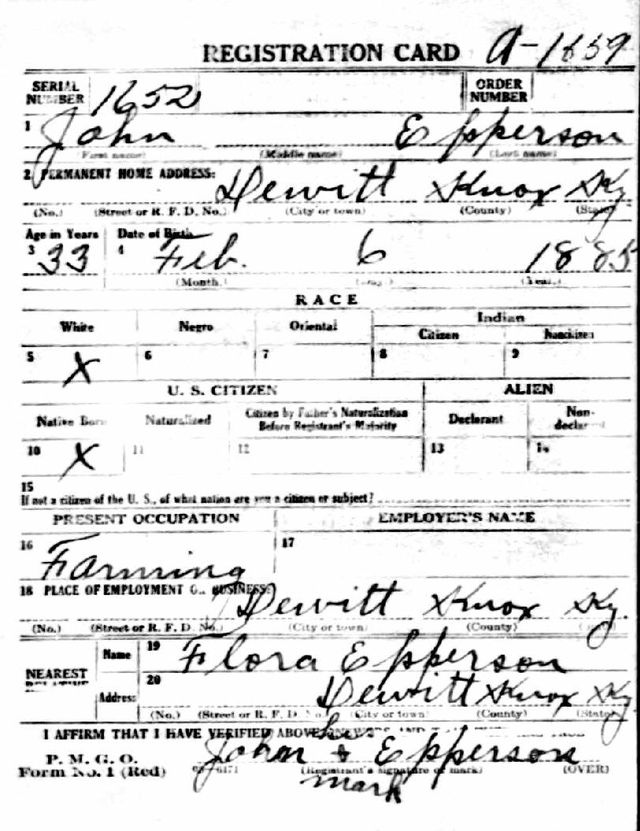 REGISTRATION CARD A-1659
SERIAL NUMBER 1652 ORDER NUMBER
1 John Epperson
(First name) (Middle name) (Last name)
2 PERMANENT HOME ADDRESS: Dewitt Knox Ky
(No.) (Street or R. F. D. No.) (City or town) (County) (State)
Age in Years Date of Birth
3 33 4 Feb. 6 1885
(Month.) (Day.) (Year.)
RACE
White Negro Oriental Indian
Citizen Noncitizen
5 X 6 7 8 9
U. S. CITIZEN ALIEN
Native Born Naturalized Citizen by Father's Naturalization Before Registrant's Majority Declarant Non-declarant
10 X 11 12 13 14
15
If not a citizen of the U. S., of what nation are you a citizen or subject?
PRESENT OCCUPATION EMPLOYER'S NAME
16 Farming 17
18 PLACE OF EMPLOYMENT OR BUSINESS: Dewitt Knox Ky.
(No.) (Street or R. F. D. No.) (City or town) (County)
NEAREST RELATIVE Name 19 Flora Epperson
Address 20 Dewitt Knox Ky
(No.) (Street or R. F. D. No.) (City or town) (County) (State)
I AFFIRM THAT I HAVE VERIFIED ABOVE ANSWERS AND
P. M. G. O.
Form No. 1 (Red) John Epperson
(Registrant's signature or mark) (OVER)
mark